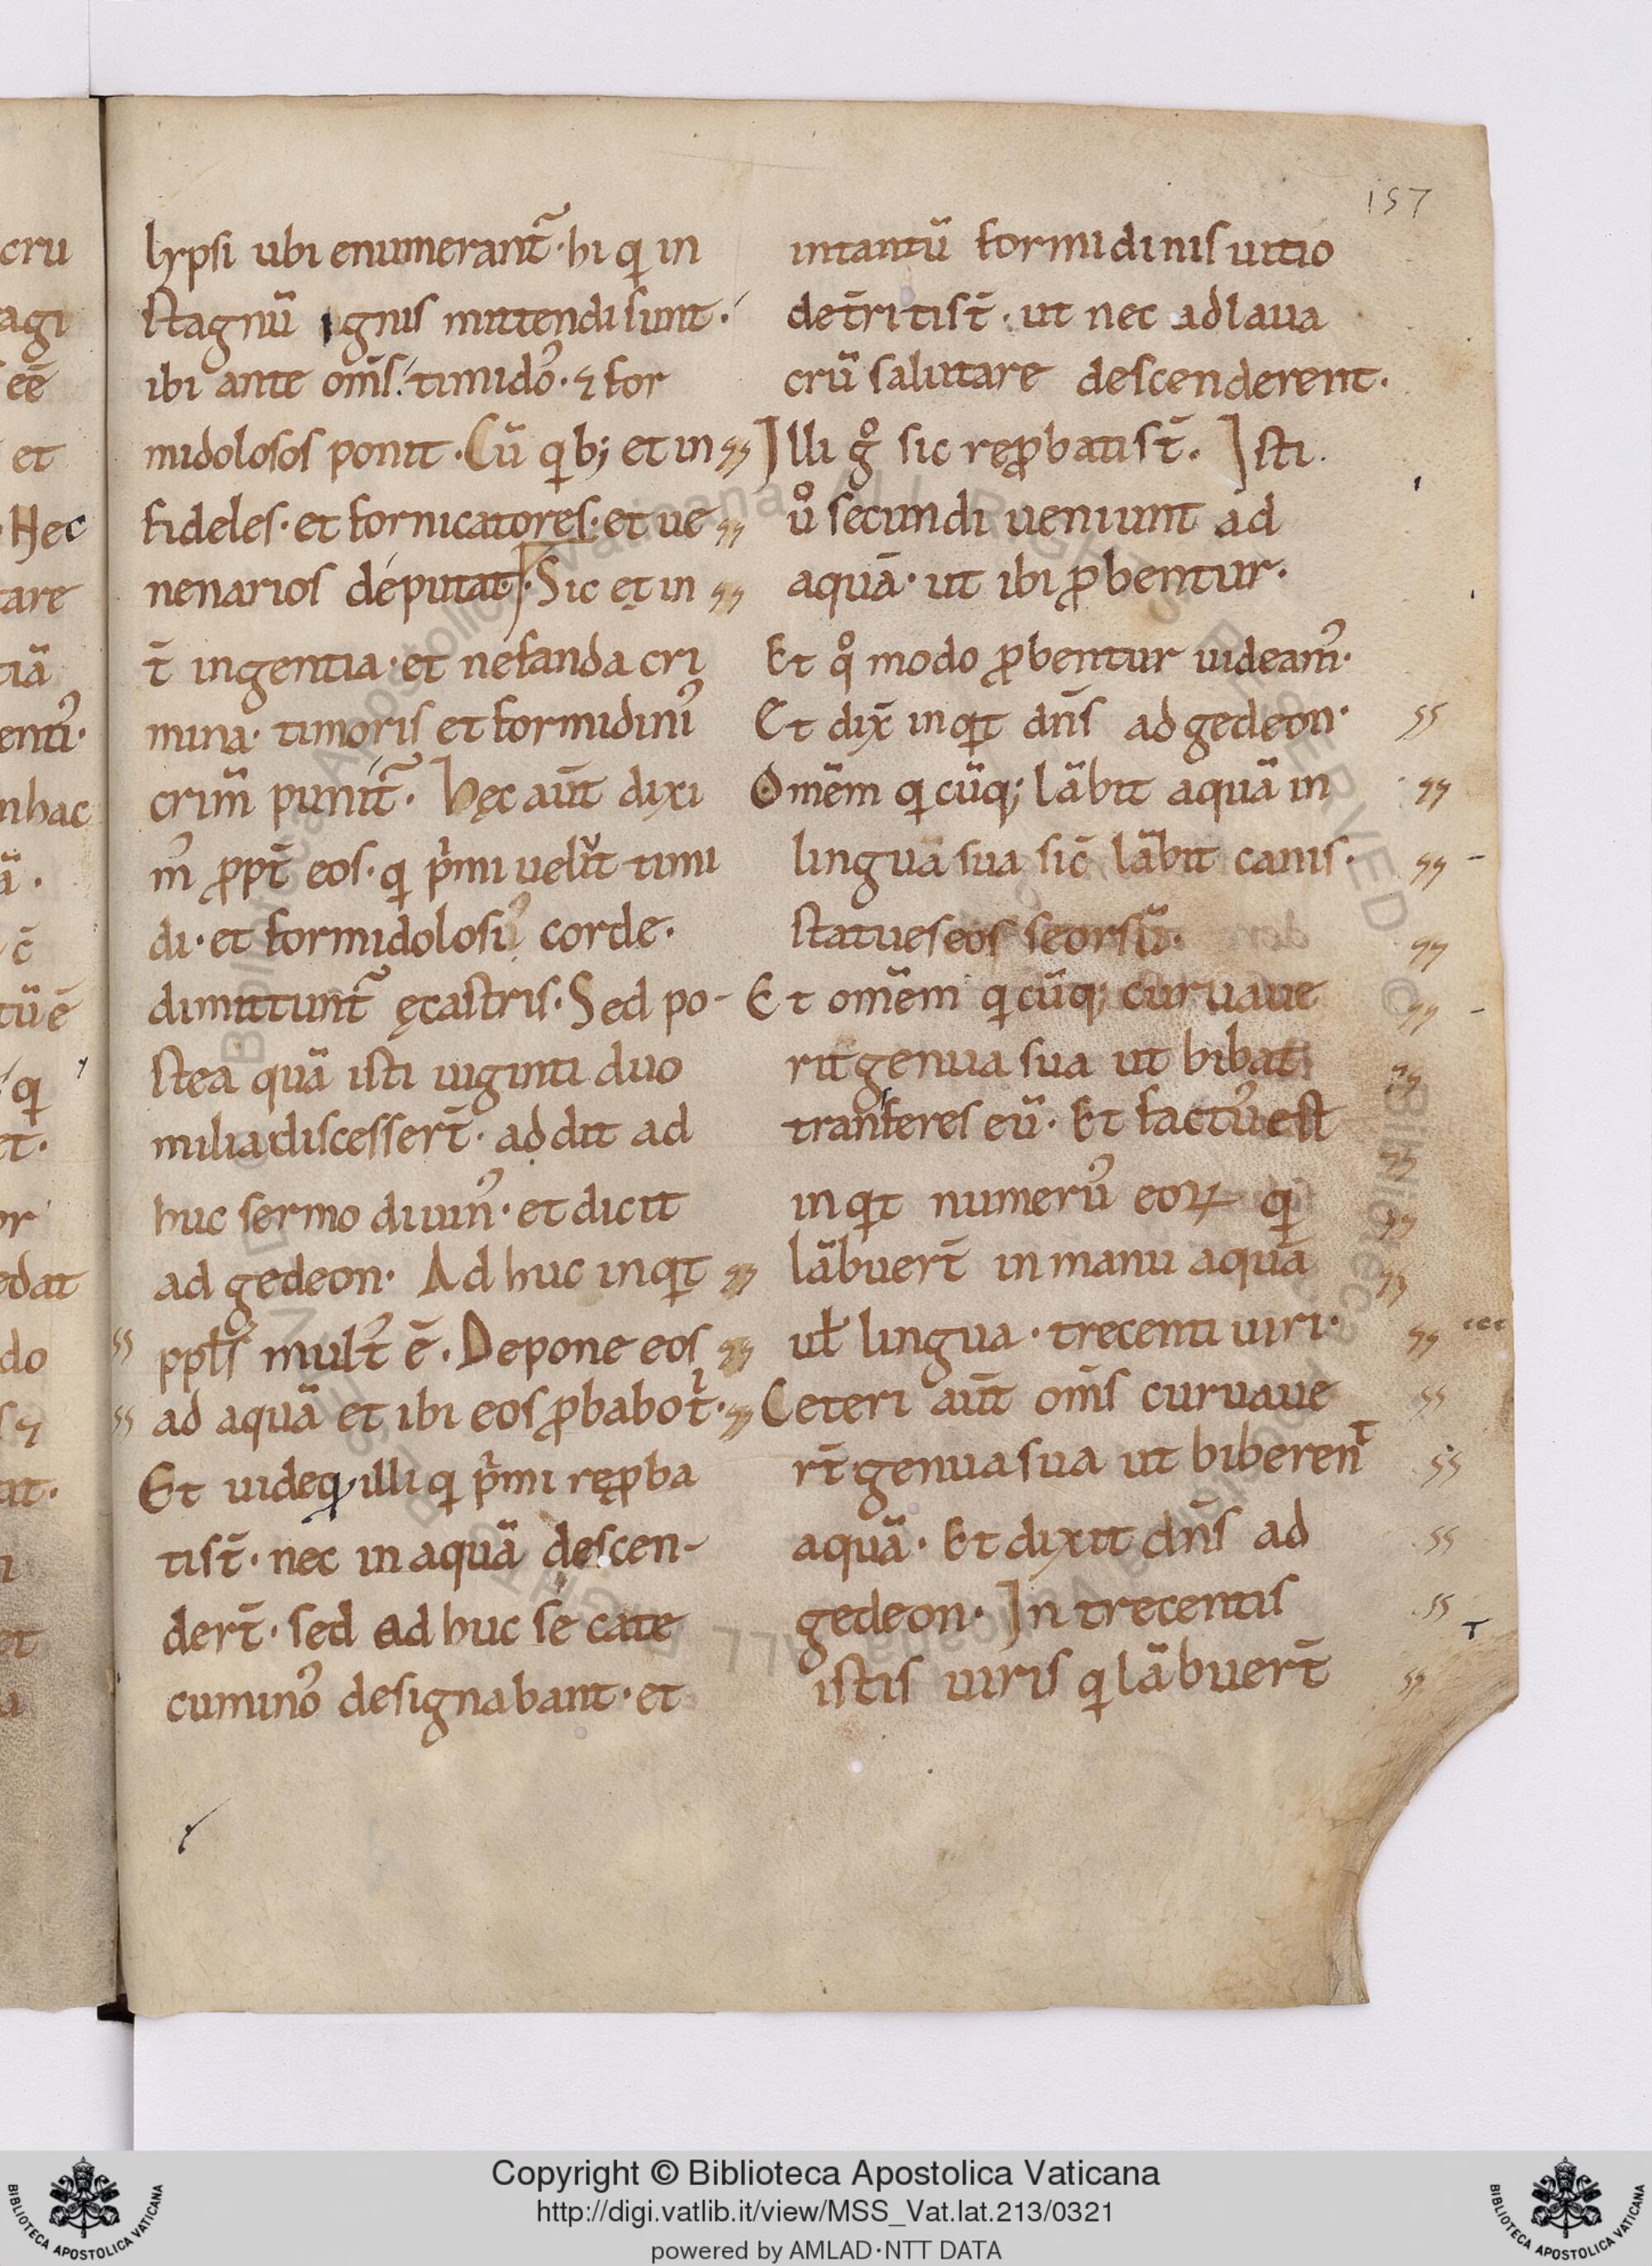 157
lypsi ubi enumerant᷑· hi q in
stagnū ignis mittendi sunt·
ibi ante om̄s· timidoˀ· ⁊ for
midolosos ponit· Cū qb; et in
fideles· et fornicatores· et ue
nenarios deputat· Sic et in
t̄ ingentia· et nefanda cri
mina· timoris et formidiniˀ
crim̄ punit᷑· hęc aūt dixi
mˀ ꝓpt̄ eos· q pͥmi uelut timi
di· et formidolosi corde·
dimittunt᷑ ęcastris· Sed po-
stea quā isti uiginti duo
milia discesser̄t· addit ad
huc sermo diuinˀ· et dicit
ad gedeon· Adhuc inqt
pplˀs multˀ ē· Depone eos
ad aquā et ibi eos ꝓbabo tͥ·
Et uideq illi q pͥmi reꝓba
ti st̄· nec in aquā descen-
der̄t· sed adhuc se cate
cuminoˀ designabant· et
intantū formidinis uitio
det̄riti st̄· ut nec ad laua
crū salutare descenderent·
Illi gͦ sic reꝓbati st̄· Isti
uͦ secundi ueniunt ad
aquā· ut ibi ꝓbentur·
Et qͦ modo ꝓbentur uideamˀ·
Et dix̄ inqt dn̄s ad gedeon·
Omēm qcūq; lābit aquā in
linguā sua sic̄ lābit canis·
statues eos seorsū·
Et omēm qcūq; curuaue
rit genua sua ut bibat
tranferes eū· Et factuˀ est
inqt numeruˀ eoꝝ q
lābuer̄t in manu aquā
ul̄ lingua· trecenti uiri·
Ceteri aūt om̄s curuaue
r̄t genua sua ut biberent
aquā· Et dixit dn̄s ad
gedeon· In trecentis
istis uiris q lābuer̄t
Copyright © Biblioteca Apostolica Vaticana
http://digi.vatlib.it/view/MSS_Vat.lat.213/0321
powered by AMLAD·NTT DATA
BIBLIOTECA APOSTOLICA VATICANA
BIBLIOTECA APOSTOLICA VATICANA